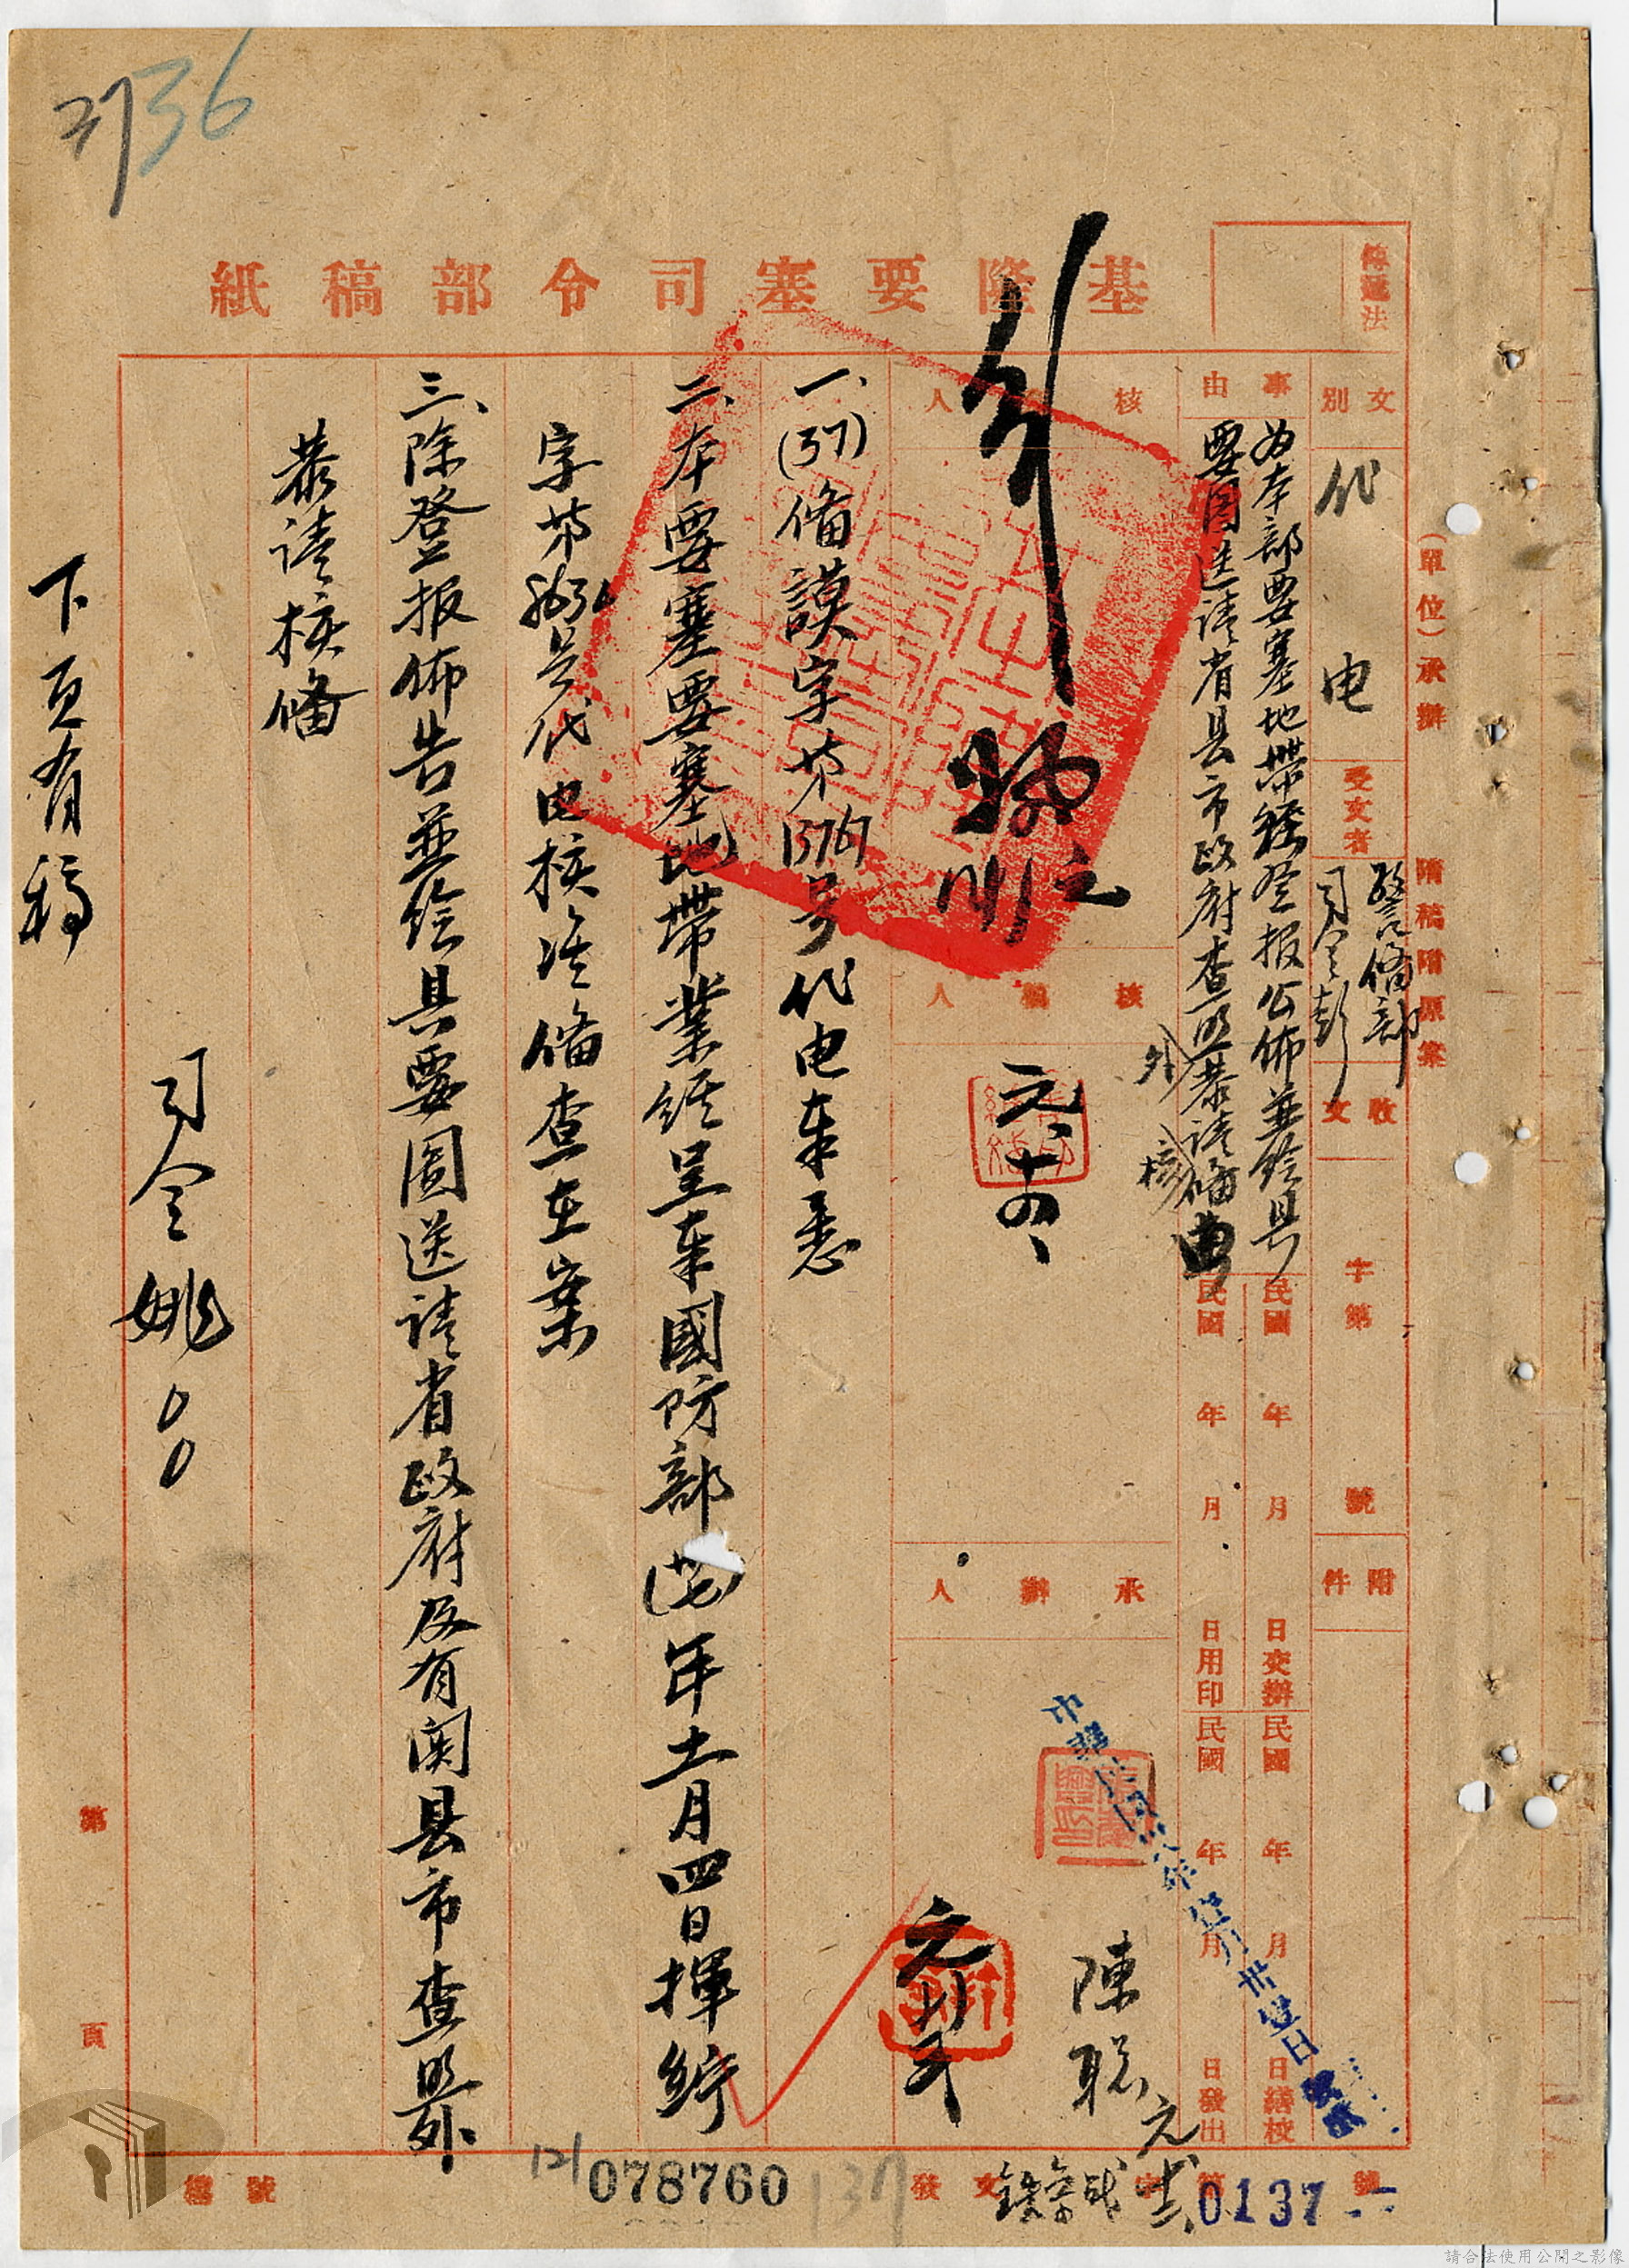 3736
基隆要塞司令部稿紙
傳遞法
(單位)承辦 隨稿附原案
文別
代電
受文者
警備部
司令彭
收文
字第
號
附件
事由
為本部要塞地帶經登報公佈並繪具
要圖送請省县市政府查照外恭請核備由
民國 年 月 日交辦
民國 年 月 日繕校
民國 年 月 日用印
民國 年 月 日發出
核
人
核稿人
元、十四、
承辦人
陳聪
元
中華民國卅八年壹月廿壹日
一、(37)備謨字第1376號代电奉悉
二、本要塞要塞地帶業經呈奉國防部(卅七)年十一月四日揮綜
字第 号代电核准備查在案
三、除登报佈告並绘具要圖送請省政府及有関县市查照外
恭請核備
司令姚00
下頁有稿
第 頁
檔號
12/078760
137
發文 字第 號
0137
請合法使用公開之影像